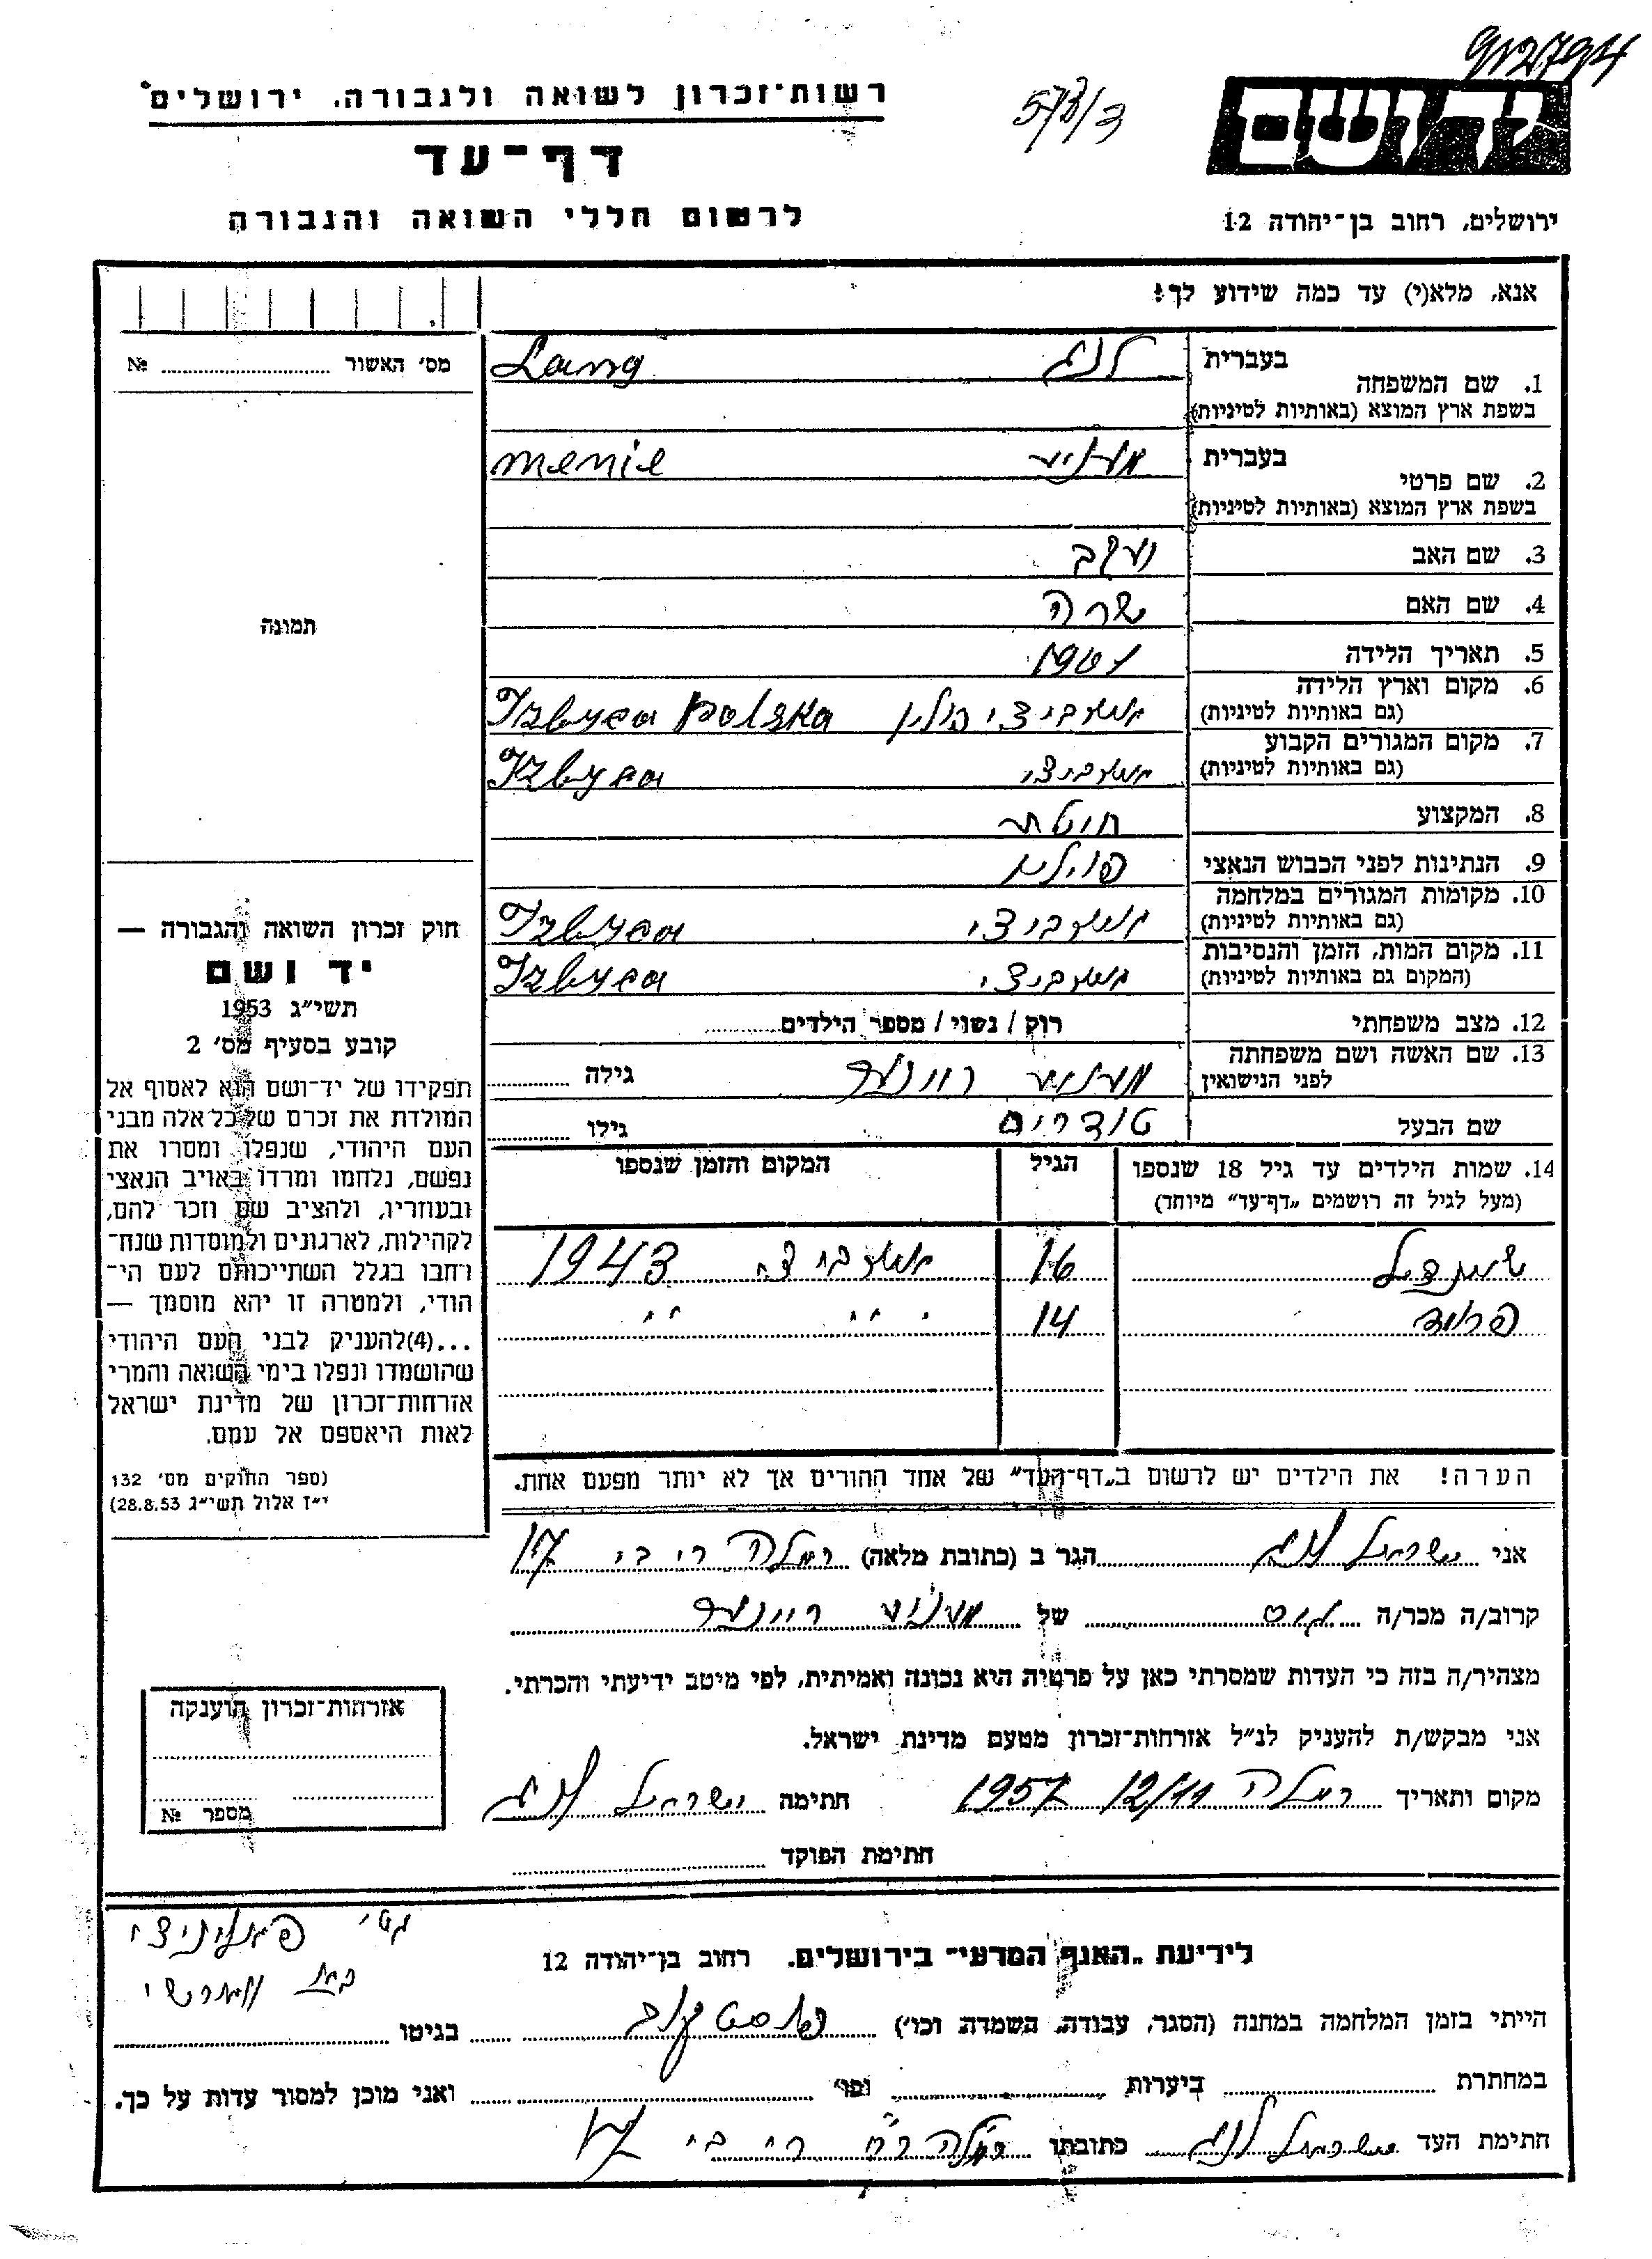 912794
רשות־זכרון לשואה ולגבורה, ירושלים
5/8/3
יד ושם
דף־עד
לרשום חללי השואה והגבורה
ירושלים, רחוב בן־יהודה 12
אנא, מלא(י) עד כמה שידוע לך!
מס׳ האשור № 
1. שם המשפחה בעברית לנג Lang
בשפת ארץ המוצא (באותיות לטיניות)
2. שם פרטי בעברית מעניע menie
בשפת ארץ המוצא (באותיות לטיניות)
3. שם האב יעקב
4. שם האם שרה
5. תאריך הלידה 1901
6. מקום וארץ הלידה איזביצי פולין Izbyca Polska
(גם באותיות לטיניות)
7. מקום המגורים הקבוע איזביצי Izbyca
(גם באותיות לטיניות)
8. המקצוע
9. הנתינות לפני הכבוש הנאצי
10. מקומות המגורים במלחמה Izbyca
(גם באותיות לטיניות)
11. מקום המות, הזמן והנסיבות Izbyca
(המקום גם באותיות לטיניות)
12. מצב משפחתי רוק / נשוי / מספר הילדים
13. שם האשה ושם משפחתה לפני הנישואין מעניע גילה
שם הבעל טודרים גילו
14. שמות הילדים עד גיל 18 שנספו הגיל המקום והזמן שנספו
(מעל לגיל זה רושמים „דף־עד״ מיוחד)
16 1943
14 ״ ״ ״
הערה! את הילדים יש לרשום ב„דף־העד״ של אחד ההורים אך לא יותר מפעם אחת.
תמונה
חוק זכרון השואה והגבורה —
יד ושם
תשי״ג 1953
קובע בסעיף מס׳ 2
תפקידו של יד־ושם הוא לאסוף אל
המולדת את זכרם של כל אלה מבני
העם היהודי, שנפלו ומסרו את
נפשם, נלחמו ומרדו באויב הנאצי
ובעוזריו, ולהציב שם וזכר להם,
לקהילות, לארגונים ולמוסדות שנח־
רחבו בגלל השתייכותם לעם הי־
הודי, ולמטרה זו יהא מוסמך —
...(4)להעניק לבני העם היהודי
שהושמדו ונפלו בימי השואה והמרי
אזרחות־זכרון של מדינת ישראל
לאות היאספם אל עמם.
(ספר החוקים מס׳ 132
י״ז אלול תשי״ג 28.8.53)
אני ישראל לנג הגר ב (כתובת מלאה) רמלה 17
קרוב/ה מכר/ה של מעניע
מצהיר/ה בזה כי העדות שמסרתי כאן על פרטיה היא נכונה ואמיתית, לפי מיטב ידיעתי והכרתי.
אני מבקש/ת להעניק לנ״ל אזרחות־זכרון מטעם מדינת ישראל.
מקום ותאריך רמלה 12/11 1957 חתימה ישראל לנג
חתימת הפוקד
אזרחות־זכרון הוענקה
מספר №
לידיעת „האגף המדעי״ בירושלים, רחוב בן־יהודה 12
הייתי בזמן המלחמה במחנה (הסגר, עבודה, השמדה וכו׳) בגיטו
במחתרת ביערות ופו׳ ואני מוכן למסור עדות על כך.
חתימת העד ישראל לנג כתובתו רמלה 17